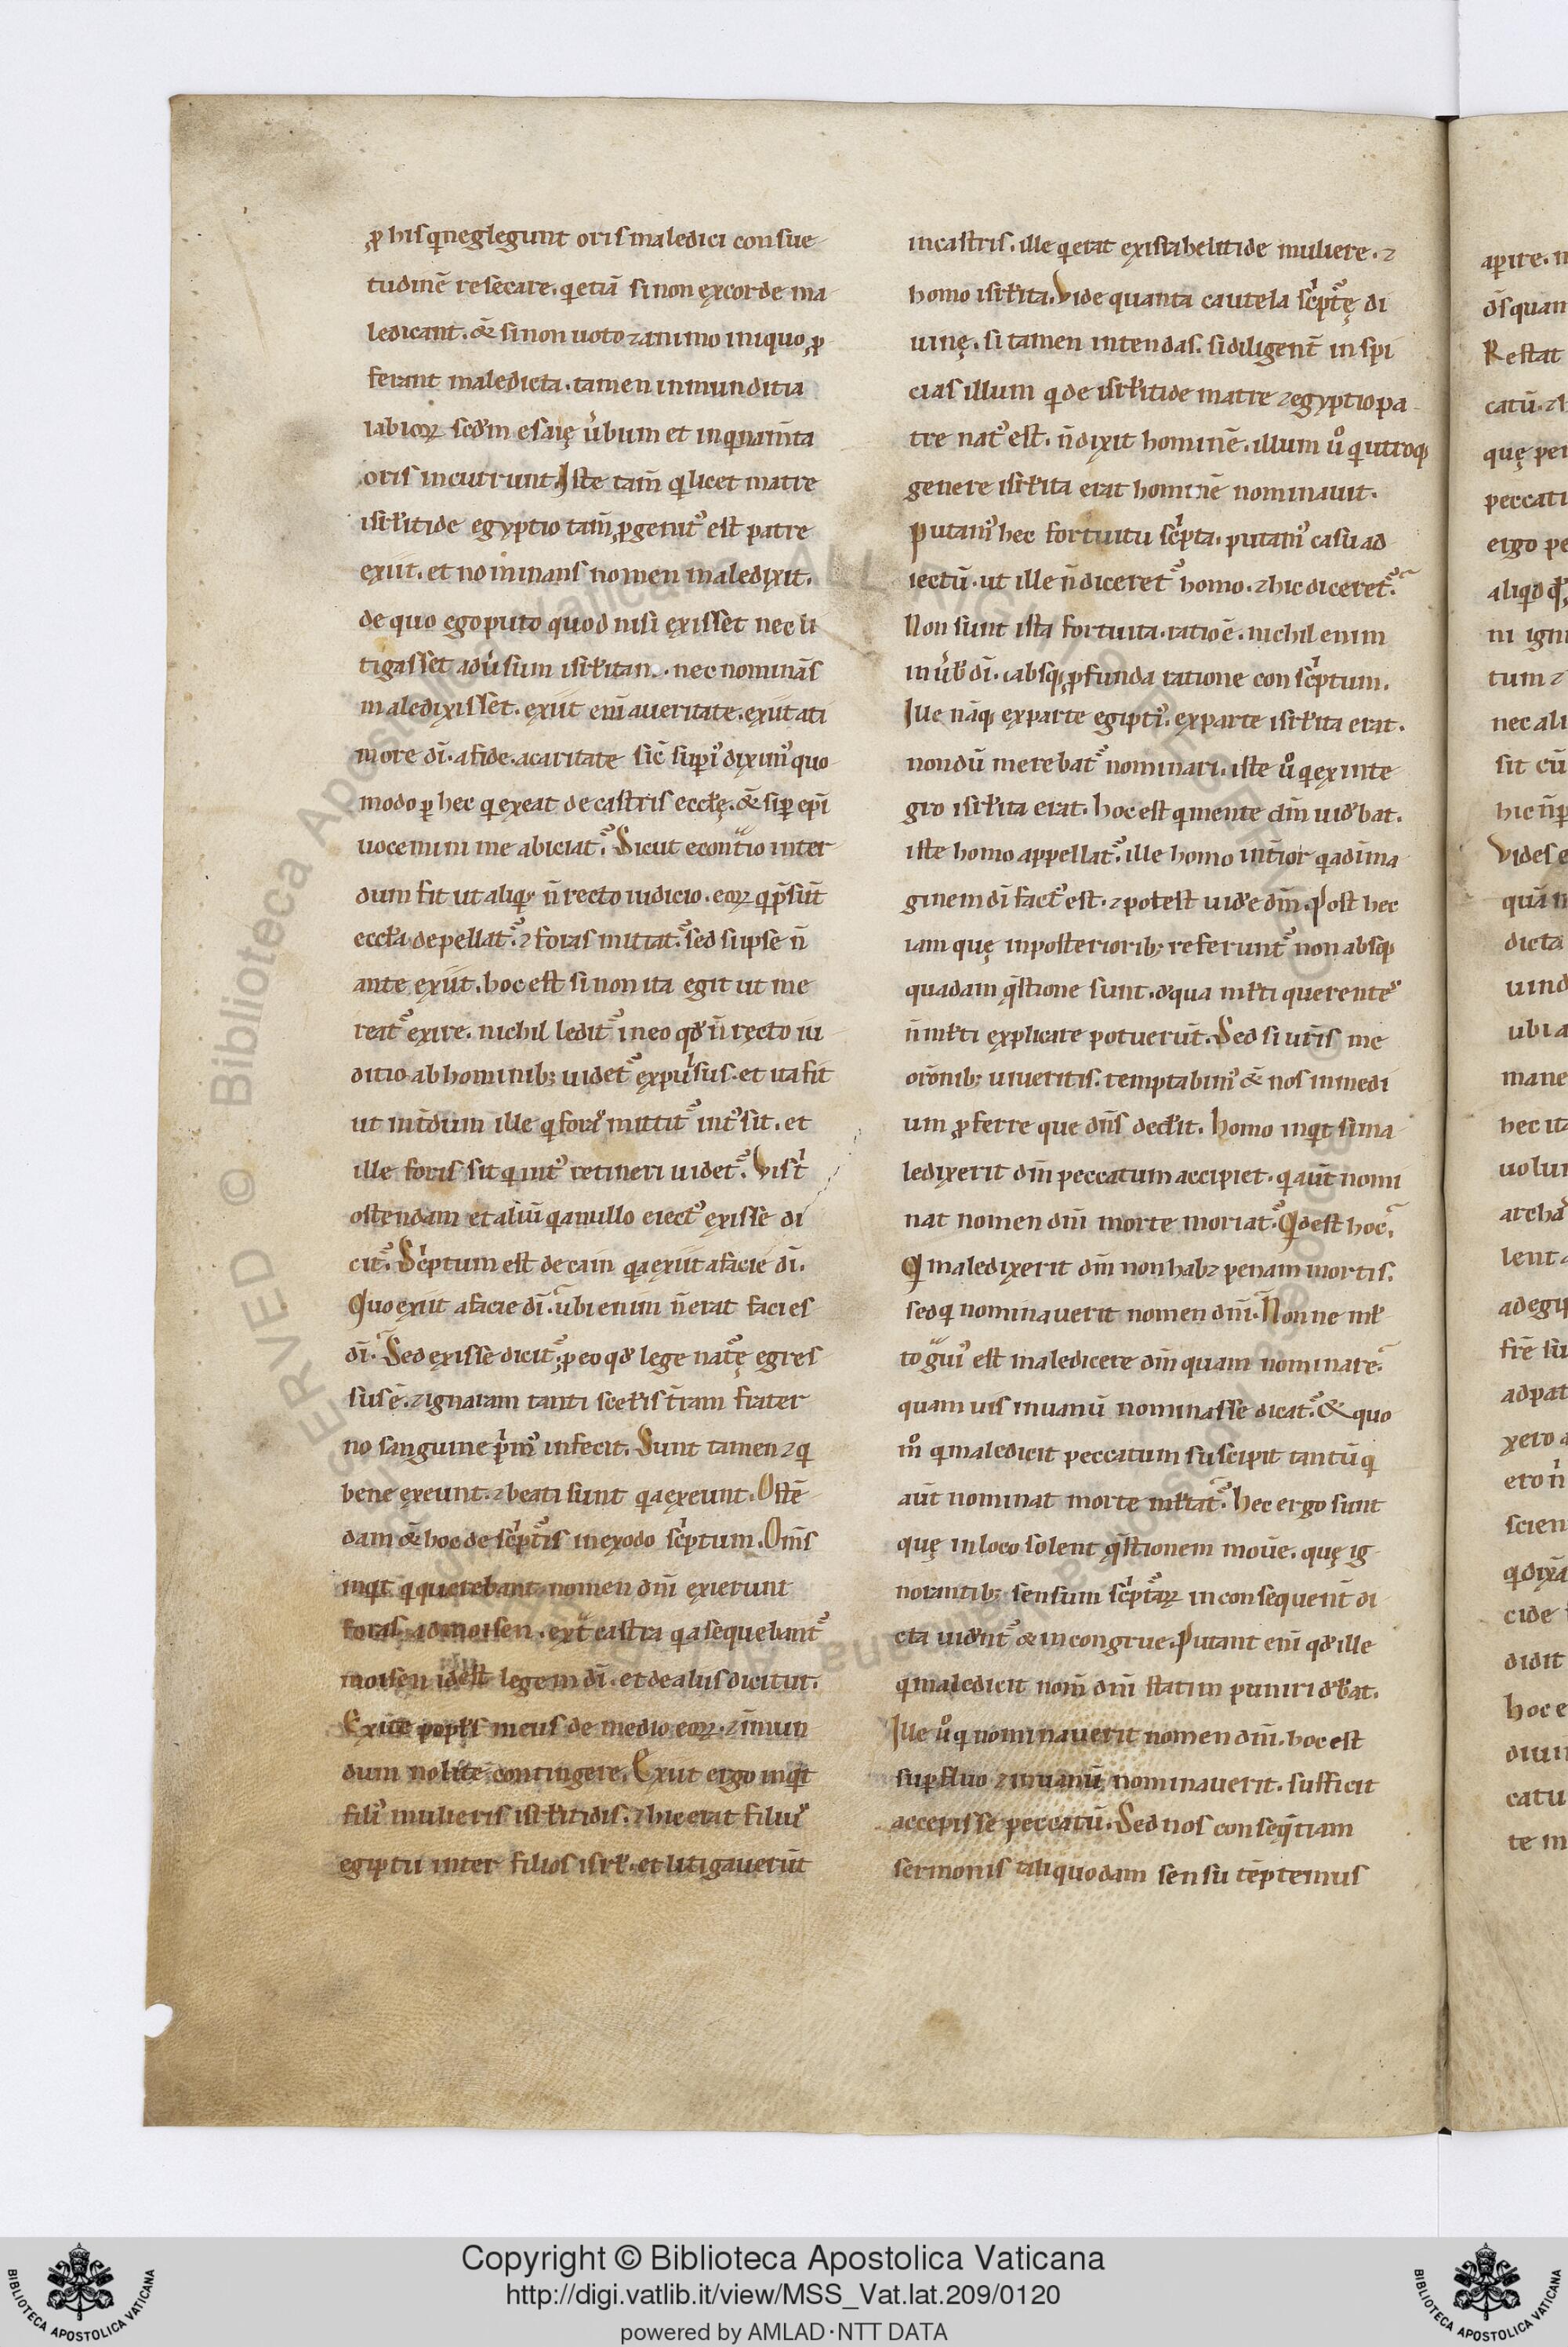 ꝓ his qͥ neglegunt oris maledici consue
tudinē resecare. qͥ etiā si non ex corde ma
ledicant. &̄ si non uoto ⁊ animo iniquo ꝓ
ferant maledicta. tamen inmunditia
labioꝝ scd̄m esaię ůbum et inqͥnam̄ta
oris incurrunt. Iste tam̄ qͥ licet matre
isrłitide egyptio tam̄ ꝓgenitꝰ est patre
exiit. et nominans nomen maledixit.
de quo ego puto quod nisi exisset nec li
tigasset adůsum isrłitam. nec nominās
maledixisset. exiit eni̅ a ueritate. exiit a ti
more dī. a fide. a caritate sic̄ supͥꝰ diximꝰ quo
modo ꝑ hec qͥ exeat de castris eccłę. &̄ si ꝑ epī
uocem minime abiciatᷣ. Sicut econtͣrio inter
dum fit ut aliqͥs n̄ recto iudicio. eoꝝ qͥ p̄sūt
eccła depellatᷣ. ⁊ foras mittatᷣ. sed si ipse n̄
ante exiit. hoc est si non ita egit ut me
reatᷣ exire. nichil leditᷣ in eo qď n̄ recto iu
ditio ab hominib; uidetᷣ expulsus. et ita fit
ut int̄dum ille qͥ foras mittitᷣ intꝰ sit. et
ille foris sit qͥ intꝰ retineri uidetᷣ. Vis t
ostendam et aliū qͥ a nullo eiectꝰ exisse di
citᷣ. Scͥptum est de cain qͥa exiit a facie dī.
Quo exiit a facie dī. ubi enim n̄ erat facies
dī. Sed exisse dicitᷣ. ꝓ eo qď lege natᷣę egres
sus ē. ⁊ ignaram tanti scełis t̄ram frater
no sanguine pͥmꝰ infecit. Sunt tamen ⁊ qͥ
bene exeunt. ⁊ beati sunt qͥa exeunt. Ostē
dam &̄ hoc de scͥptᷣis in exodo scͥptum. Om̄s
inqͥt qͥ querebant nomen dn̄i exierunt
foras ad moisen. extͣ castra qͥa sequebantᷣ
moisen id est legem dī. et de aliis dicitur.
Exite popłs meus de medio eoꝝ. ⁊ inmun
dum nolite contingere. Exiit ergo inqͥt
filiꝰ mulieris isrłitidis. ⁊ hic erat filius
egiptii inter filios isrł. et litigauerūt
in castris. ille qͥ erat ex isrłahelitide muliere. ⁊
homo isrłita. Vide quanta cautela scͥptᷣę di
uinę. si tamen intendas. si diligent̄ inspi
cias illum qͥ de isrłitide matre ⁊ egyptio pa
tre natꝰ est. n̄ dixit hominē. illum ů qͥ utroq;
genere isrłita erat hominē nominauit.
Putamꝰ hec fortuitu scͥpta. putamꝰ casu ad
iectū. ut ille n̄ diceretᷣ homo. ⁊ hic diceretᷣ.
Non sunt ista fortuita. ratio ē. nichil enim
in ůb dī. absq; ꝓfunda ratione conscͥptum.
Ille nāq; ex parte egiptiꝰ. ex parte isrłita erat.
nondū merebatᷣ nominari. iste ů qͥ ex inte
gro isrłita erat. hoc est qͥ mente dm̄ uiďbat.
iste homo appellatᷣ. ille homo int̄ior qͥ ad īma
ginem dī factꝰ est. ⁊ potest uiďe dm̄. Post hec
iam quę in posteriorib; referuntᷣ non absq;
quadam q̄stione sunt. ďqua młti querentes
n̄ młti explicare potuerūt. Sed si ur̄is me
or̄onib; iuueritis. temptabimꝰ &̄ nos in medi
um ꝓferre que dn̄s deďit. Homo inqͥt si ma
ledixerit dm̄ peccatum accipiet. qͥ aūt nomi
nat nomen dn̄i morte moriatᷣ. Qͥd est hoc.
Qͥ maledixerit dm̄ non hab; penam mortis.
sed qͥ nominauerit nomen dn̄i. Nonne mł
to gͣuiꝰ est maledicere dm̄ quam nominare.
quamuis in uanū nominasse dicatᷣ. &̄ quo
m̊ qͥ maledicit peccatum suscipit tantū qͥ
aūt nominat morte młtatᷣ. Hec ergo sunt
quę in loco solent q̄stionem mouē. quę ig
norantib; sensum scͥptᷣaꝝ inconsequent̄ di
cta uiďntᷣ & incongrue. Putant eni̅ qď ille
qͥ maledicit nom̄ dn̄i statim puniri ďbat.
Ille ů qͥ nominauerit nomen dn̄i. hoc est
supͥfluo ⁊ in uanū nominauerit. sufficit
accepisse peccatū. Sed nos conseq̄ntiam
sermonis tali quodam sensu tēptemus
Copyright © Biblioteca Apostolica Vaticana
http://digi.vatlib.it/view/MSS_Vat.lat.209/0120
powered by AMLAD·NTT DATA
BIBLIOTECA APOSTOLICA VATICANA
BIBLIOTECA APOSTOLICA VATICANA